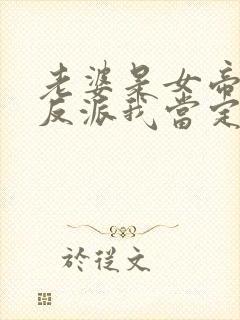 老婆是女帝
反派我當定
於從文